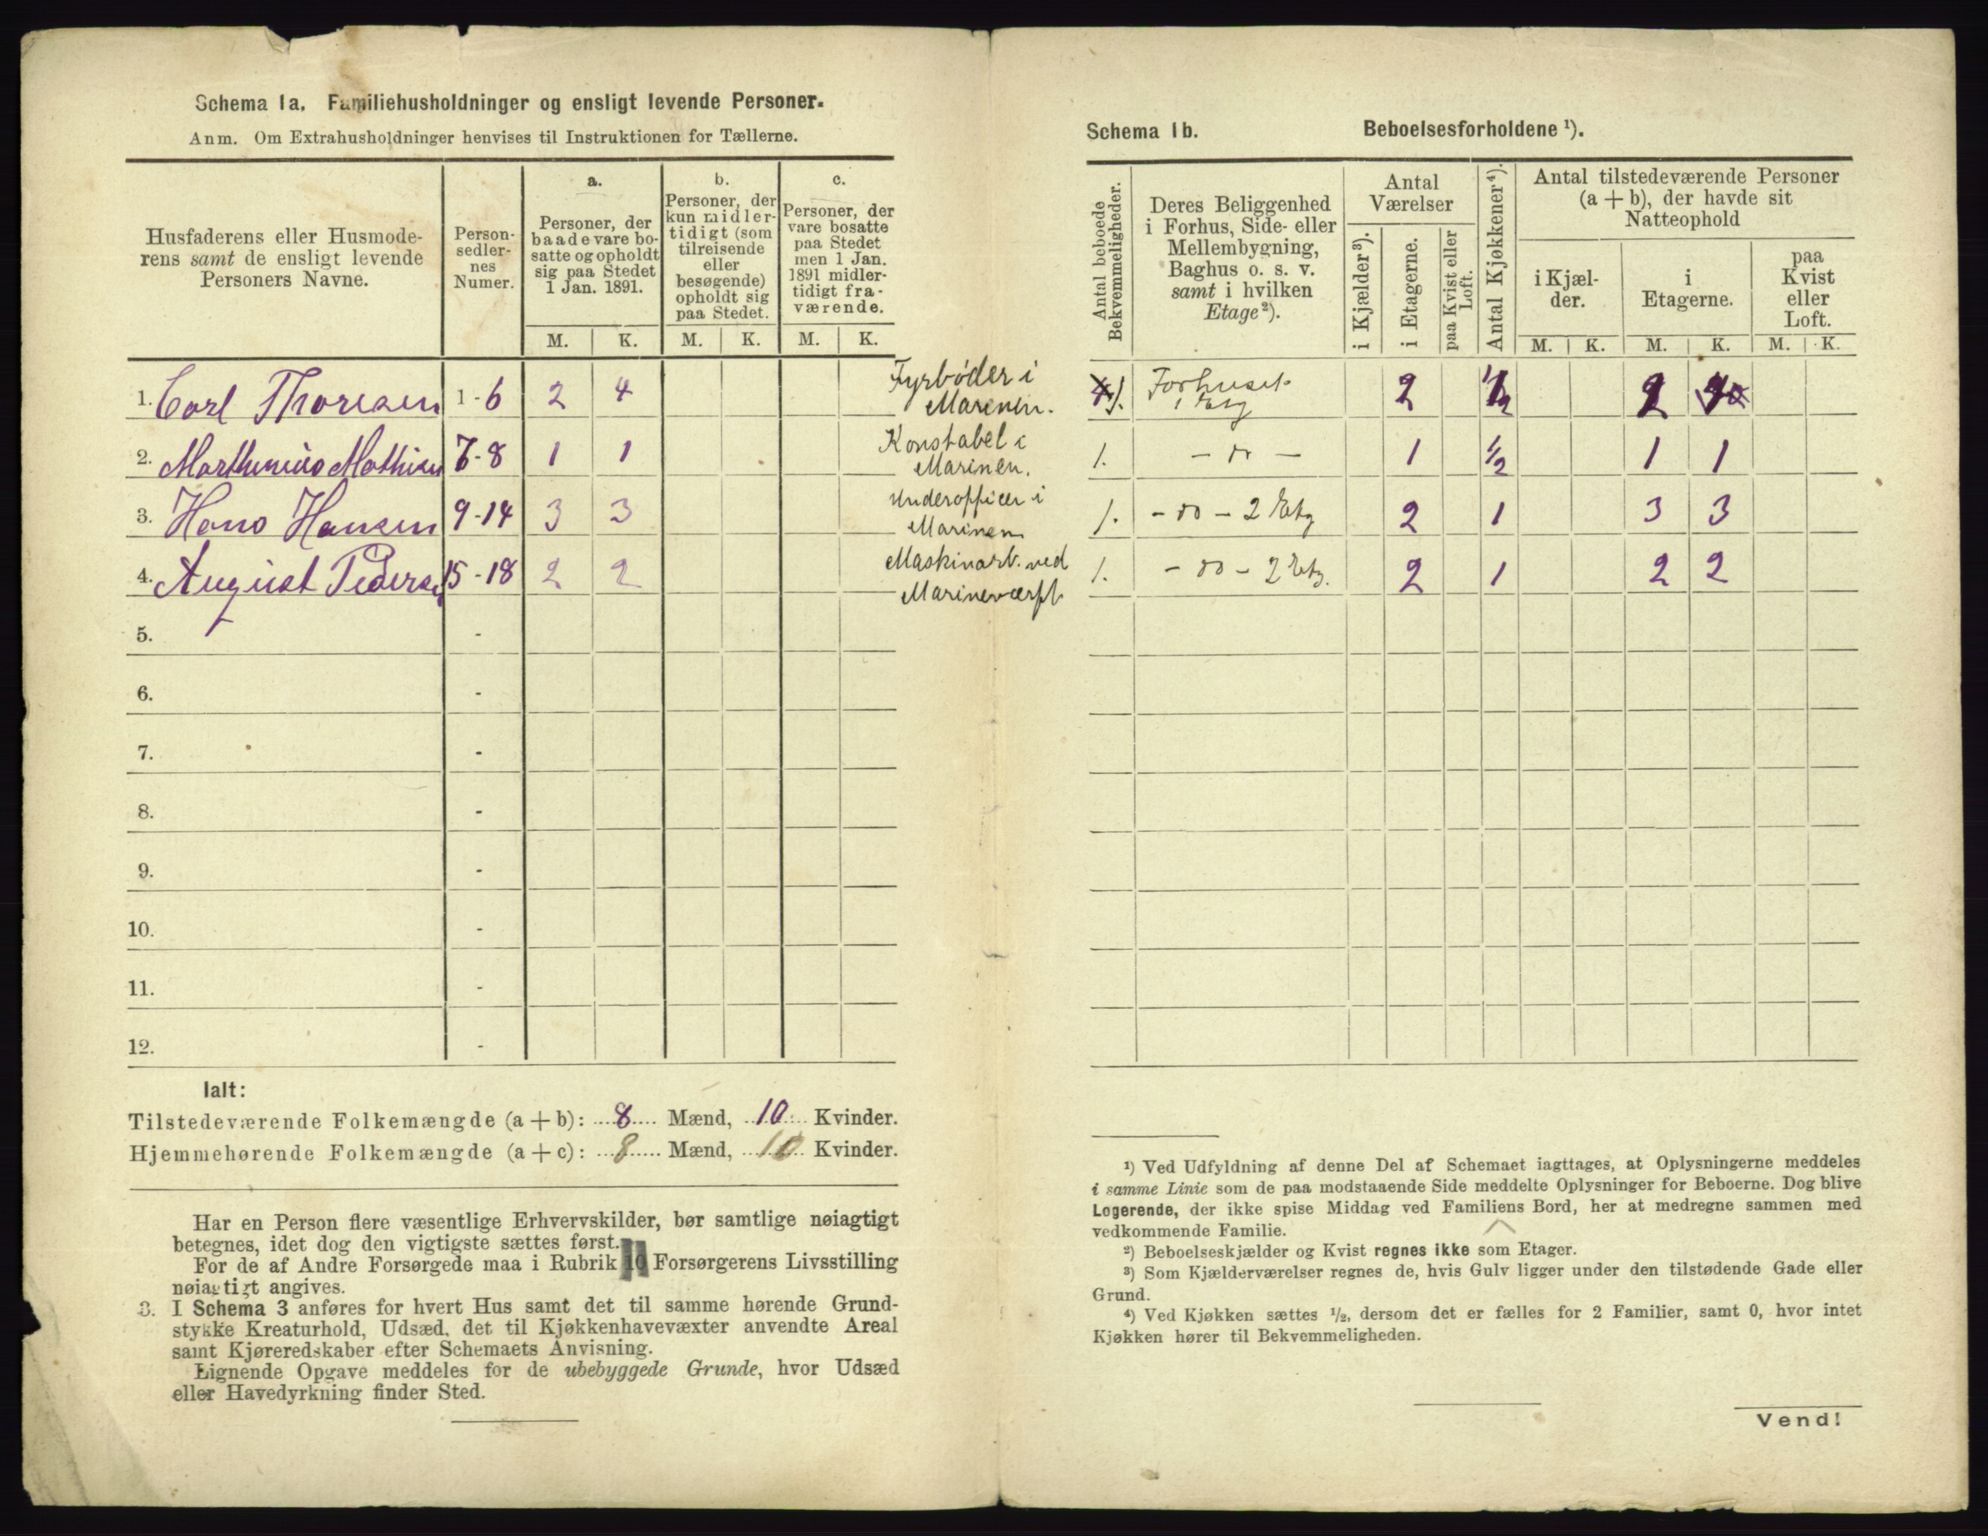 Schema 1a. Familiehusholdninger og ensligt levende Personer.
Anm. Om Extrahusholdninger henvises til Instruktionen for Tællerne.
Husfaderens eller Husmode-
rens samt de ensligt levende
Personers Navne.
Person-
sedler-
nes
Numer.
a.
Personer, der
baade vare bo-
satte og opholdt
sig paa Stedet
1 Jan. 1891.
b.
Personer, der
kun midler-
tidigt (som
tilreisende
eller
besøgende)
opholdt sig
paa Stedet.
c.
Personer, der
vare bosatte
paa Stedet
men 1 Jan.
1891 midler-
tidigt fra-
værende.
M. K. M. K. M. K.
1. Carl Thoresen 1-6 2 4 Fyrbøder i
Marinen.
2. Marthinius Mathisen 7-8 1 1 Konstabel i
Marinen.
3. Hans Hansen 9-14 3 3 Underofficer i
Marinen
4. August Pedersen 15-18 2 2 Maskinarb. ved
Marineværft
5. -
6. -
7. -
8. -
9. -
10. -
11. -
12. -
Ialt:
Tilstedeværende Folkemængde (a + b): 8 Mænd, 10 Kvinder.
Hjemmehørende Folkemængde (a + c): 8 Mænd, 10 Kvinder.
Har en Person flere væsentlige Erhvervskilder, bør samtlige nøiagtigt
betegnes, idet dog den vigtigste sættes først.
For de af Andre Forsørgede maa i Rubrik 10 Forsørgerens Livsstilling
nøiagtigt angives.
3. I Schema 3 anføres for hvert Hus samt det til samme hørende Grund-
stykke Kreaturhold, Udsæd, det til Kjøkkenhavevæxter anvendte Areal
samt Kjøreredskaber efter Schemaets Anvisning.
Lignende Opgave meddeles for de ubebyggede Grunde, hvor Udsæd
eller Havedyrkning finder Sted.
Schema 1b. Beboelsesforholdene ¹).
Antal beboede
Bekvemmeligheder.
Deres Beliggenhed
i Forhus, Side- eller
Mellembygning,
Baghus o. s. v.
samt i hvilken
Etage ²).
Antal
Værelser
i Kjælder ³).
i Etagerne.
paa Kvist eller
Loft.
Antal Kjøkkener ⁴).
Antal tilstedeværende Personer
(a + b), der havde sit
Natteophold
i Kjæl-
der.
i
Etagerne.
paa
Kvist
eller
Loft.
M. K. M. K. M. K.
1. Forhuset
1 Etg 2 1/2 2
1. - do - 1 1/2 1 1
1. - do - 2 Etg 2 1 3 3
1. - do - 2 Etg. 2 1 2 2
¹) Ved Udfyldning af denne Del af Schemaet iagttages, at Oplysningerne meddeles
i samme Linie som de paa modstaaende Side meddelte Oplysninger for Beboerne. Dog blive
Logerende, der ikke spise Middag ved Familiens Bord, her at medregne sammen med
vedkommende Familie.
²) Beboelseskjælder og Kvist regnes ikke som Etager.
³) Som Kjælderværelser regnes de, hvis Gulv ligger under den tilstødende Gade eller
Grund.
⁴) Ved Kjøkken sættes ½, dersom det er fælles for 2 Familier, samt 0, hvor intet
Kjøkken hører til Bekvemmeligheden.
Vend!